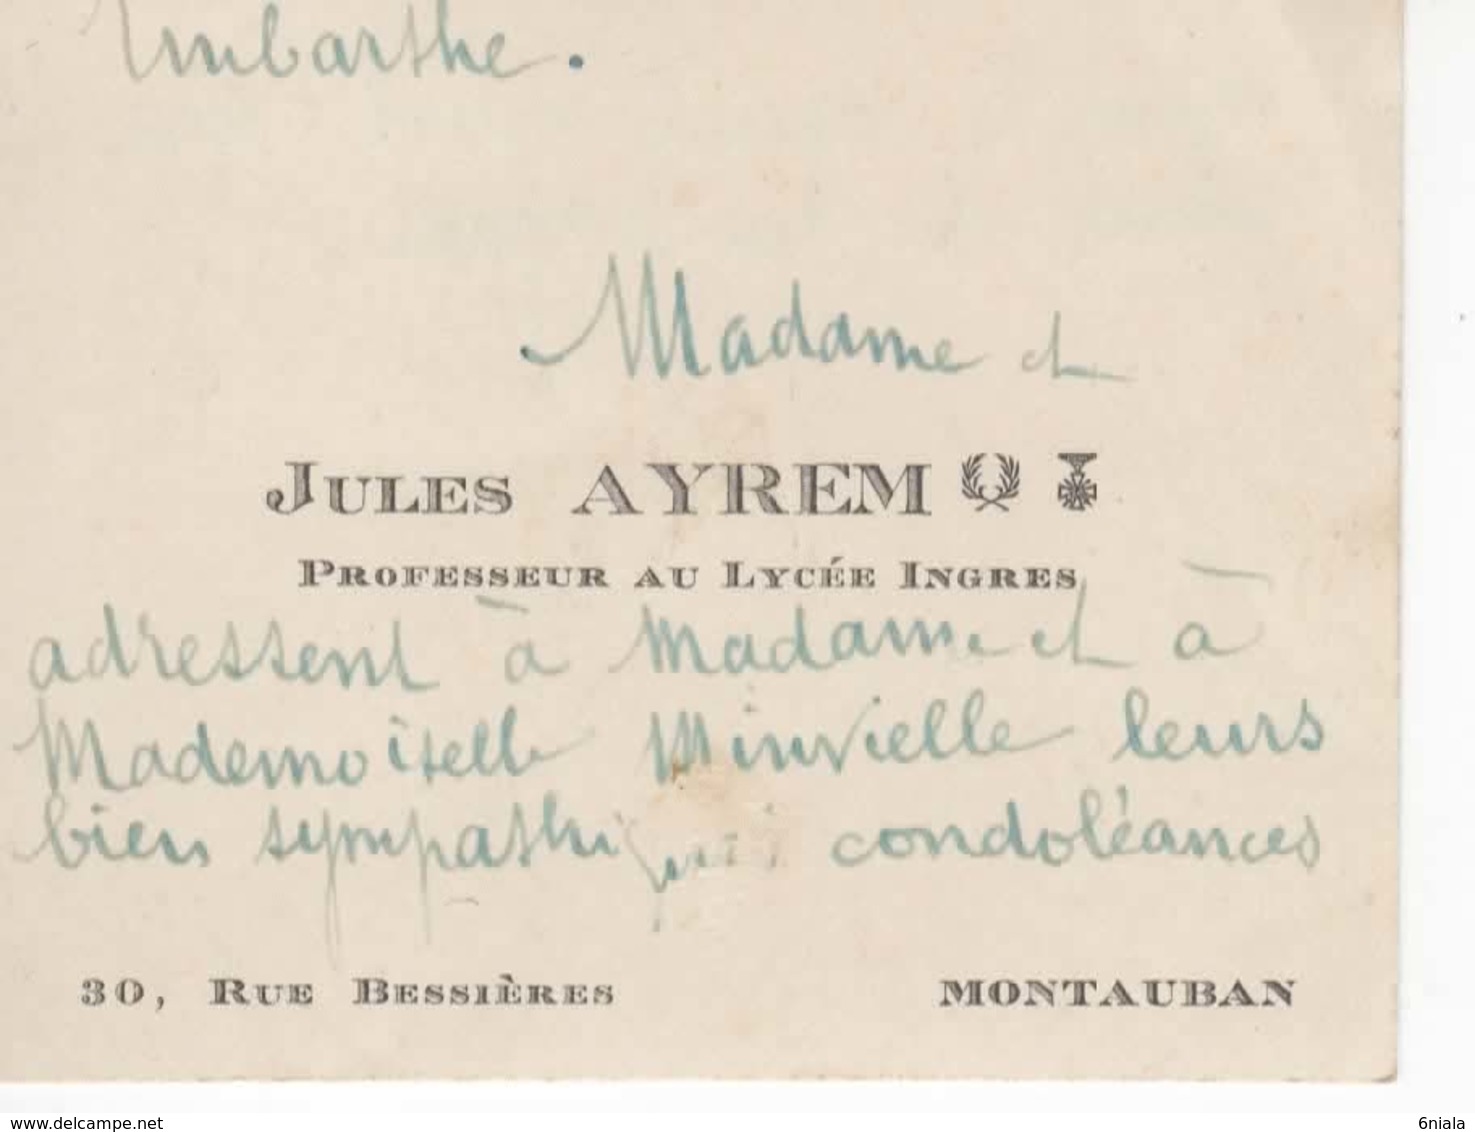 Embarthe.
Madame et
JULES AYREM
PROFESSEUR AU LYCÉE INGRES
adressent à Madame et à
Mademoiselle Minvielle leurs
bien sympathiques condoléances
30, RUE BESSIÈRES MONTAUBAN
www.delcampe.net 6niala